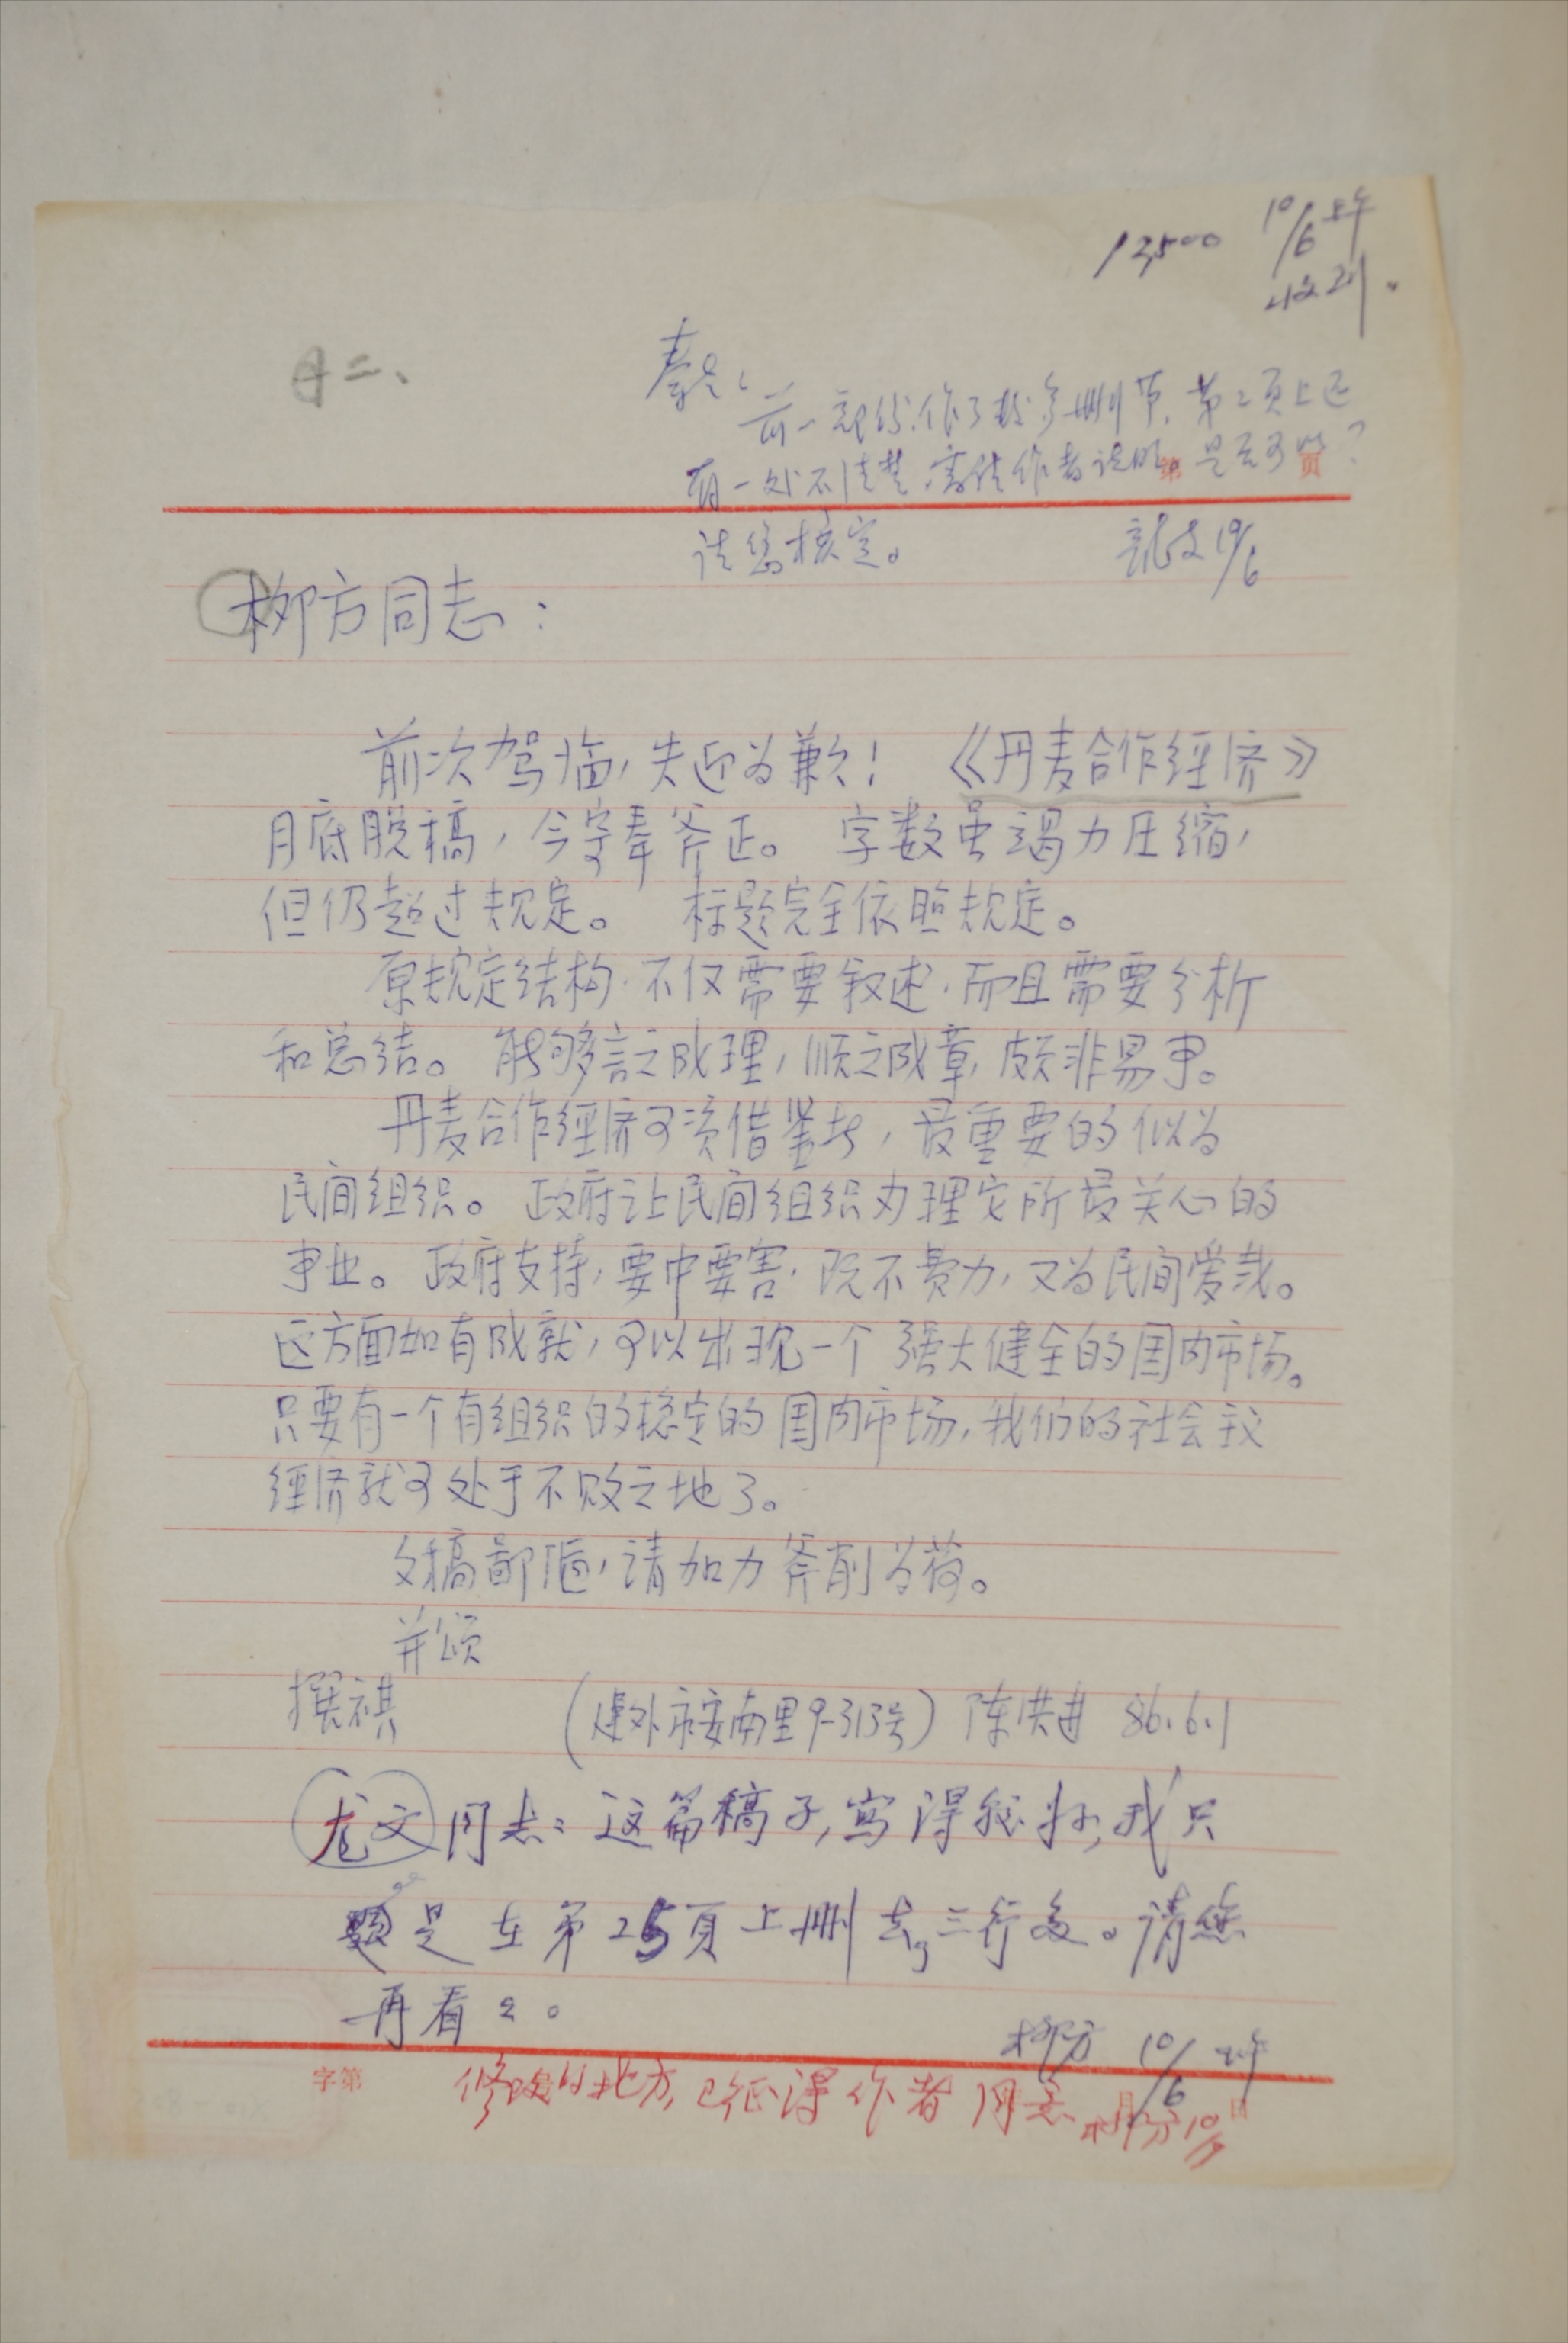 13500
10/6 上午
收到。
前一部份作了较多删节,第2页上还
有一处不清楚,需请作者说明。是否可以?
请您核定。 龙文 10/6
第 页
柳方同志:
前次驾临,失迎为歉! 《丹麦合作經济》
月底脱稿,今寄奉斧正。 字数虽竭力压缩,
但仍超过规定。 标题完全依照规定。
原规定结构,不仅需要叙述,而且需要分析
和总结。 能够言之成理,顺之成章,颇非易事。
丹麦合作經济可资借鉴者,最重要的似为
民间组织。 政府让民间组织办理它所最关心的
事业。 政府支持,要中要害,既不费力,又为民间爱戴。
这方面如有成就,可以出现一个强大健全的国内市场。
只要有一个有组织的稳定的国内市场,我们的社会主义
經济就可处于不败之地了。
文稿鄙陋,请加力斧削为荷。
并颂
撰祺 (建外永安南里9-313号) 陈洪进 86.6.1
龙文同志:这篇稿子,写得很好,我只
是在第25頁上删去了三行多。请您
再看看。
柳方 10/6 上午
字第 月 日
修改的地方,已征得作者同意 柳方